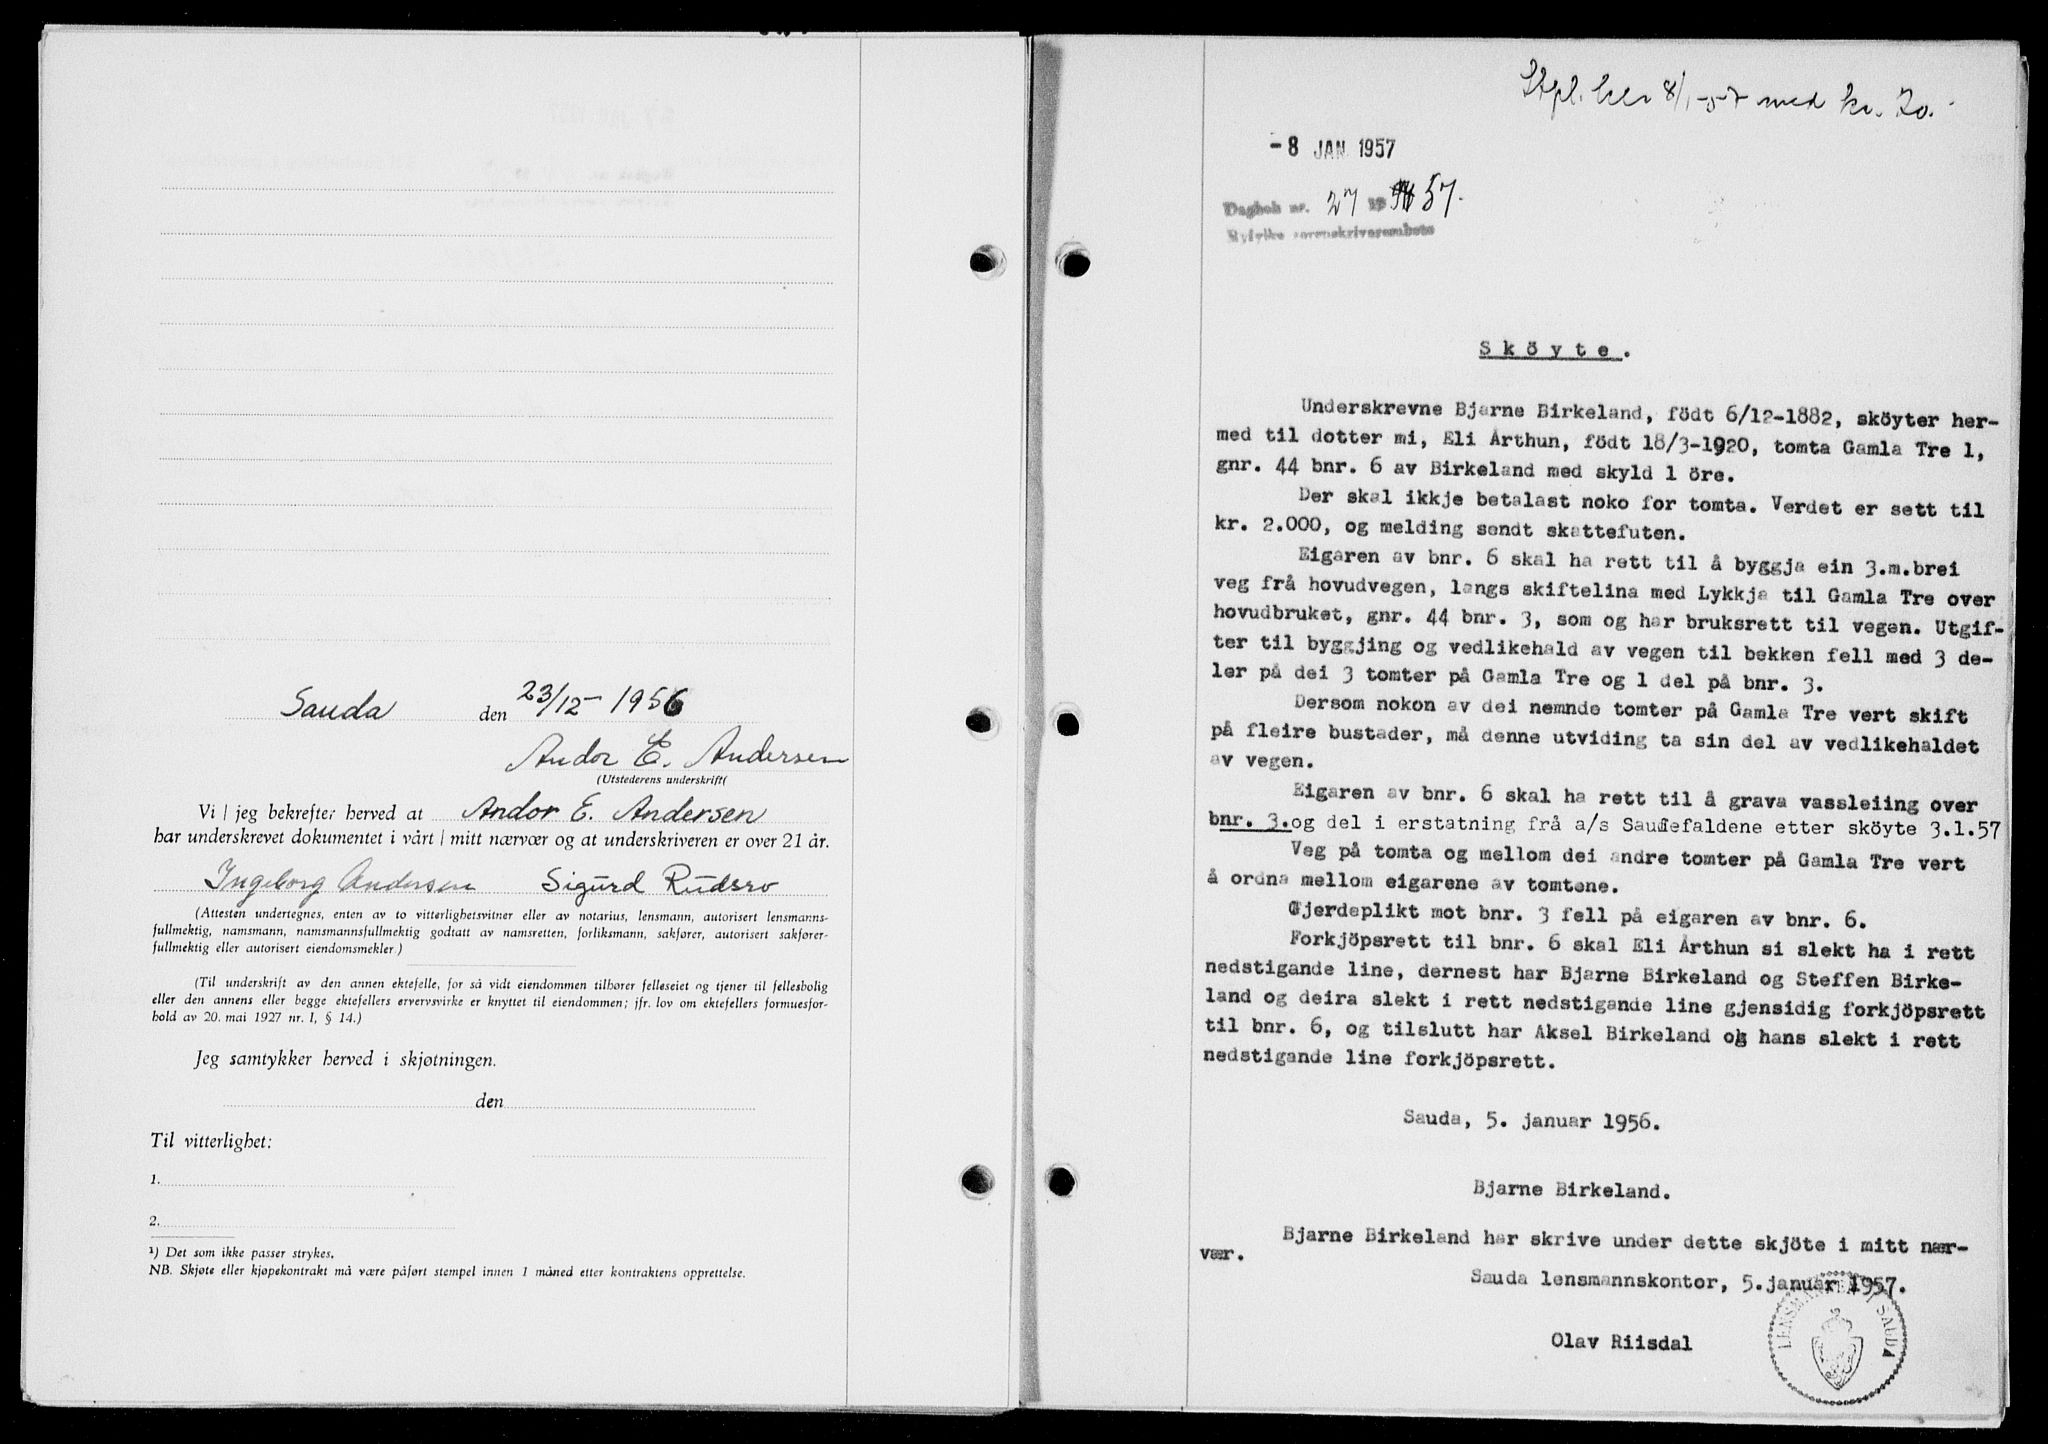 Sauda den 23/12-1956
Andor E. Andersen
(Utstederens underskrift(
Vi / jeg bekrefter herved at Andor E. Andersen
har underskrevet dokumentet i vårt / mitt nærvær og at underskriveren er over 21 år.
Ingeborg Andersen Sigurd Rudsro
(Attesten undertegnes, enten av to vitterlighetsvitner eller av notarius, lensmann, autorisert lensmanns-
fullmektig, namsmann, namsmannsfullmektig godtatt av namsretten, forliksmann, sakfører, autorisert sakfører-
fullmektig eller autorisert eiendomsmekler.)
(Til underskrift av den annen ektefelle, for så vidt eiendommen tilhører felleseiet og tjener til fellesbolig
eller den annens eller begge ektefellers ervervsvirke er knyttet til eiendommen; jfr. lov om ektefellers formuesfor-
hold av 20. mai 1927 nr. 1, § 14.)
Jeg samtykker herved i skjøtningen.
den
Til vitterlighet:
1.
2.
¹) Det som ikke passer strykes.
NB. Skjøte eller kjøpekontrakt må være påført stempel innen 1 måned etter kontraktens opprettelse.
Stpl. her 8/1-57 med kr. 20.-
-8 JAN. 1957
Dagbok nr. 27 19 57.
Ryfylke sorenskrivarembete
Sköyte.
Underskrevne Bjarne Birkeland, födt 6/12-1882, sköyter her-
med til dotter mi, Eli Årthun, födt 18/3-1920, tomta Gamla Tre 1,
gnr. 44 bnr. 6 av Birkeland med skyld 1 öre.
Der skal ikkje betalast noko for tomta. Verdet er sett til
kr. 2.000, og melding sendt skattefuten.
Eigaren av bnr. 6 skal ha rett til å byggja ein 3.m.brei
veg frå hovudvegen, langs skiftelina med Lykkja til Gamla Tre over
hovudbruket, gnr. 44 bnr. 3, som og har bruksrett til vegen. Utgif-
ter til byggjing og vedlikehald av vegen til bekken fell med 3 de-
ler på dei 3 tomter på Gamla Tre og 1 del på bnr. 3.
Dersom nokon av dei nemnde tomter på Gamla Tre vert skift
på fleire bustader, må denne utviding ta sin del av vedlikehaldet
av vegen.
Eigaren av bnr. 6 skal ha rett til å grava vassleiing over
bnr. 3.og del i erstatning frå a/s Saudefaldene etter sköyte 3.1.57
Veg på tomta og mellom dei andre tomter på Gamla Tre vert
å ordna mellom eigarene av tomtene.
Gjerdeplikt mot bnr. 3 fell på eigaren av bnr. 6.
Forkjöpsrett til bnr. 6 skal Eli Årthun si slekt ha i rett
nedstigande line, dernest har Bjarne Birkeland og Steffen Birke-
land og deira slekt i rett nedstigande line gjensidig forkjöpsrett
til bnr. 6, og tilslutt har Aksel Birkeland og hans slekt i rett
nedstigande line forkjöpsrett.
Sauda, 5. januar 1956.
Bjarne Birkeland.
Bjarne Birkeland har skrive under dette skjöte i mitt nær-
vær.
Sauda lensmannskontor, 5.januar 1957.
Olav Riisdal
LENSMANNEN I SAUDA